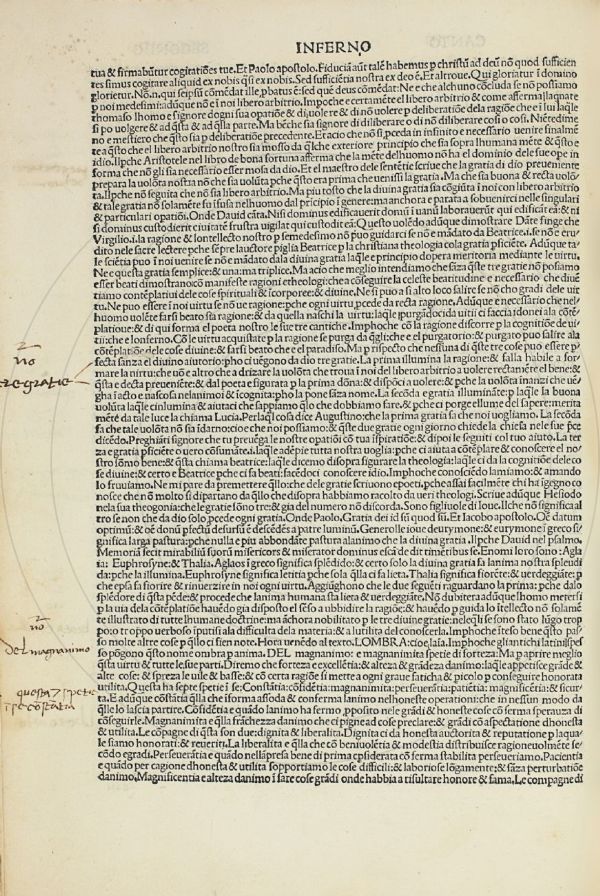 INFERNO
tua & firmabūtur cogitatiōes tue. Et Paolo apostolo. Fiduciā aūt talē habemus p christū ad deū nō quod sufficien
tes simus cogitare aliquid ex nobis q̄si ex nobis. Sed sufficiētia nostra ex deo ē. Et altroue. Qui gloriatur ī domino
glorietur. Nō.n. qui seipsū cōmēdat ille, pbatus ē: sed quē deus cōmēdat: Ne e che alchuno cōcluda se nō possiamo
p noi medesimi: adūque nō e ī noi libero arbitrio. Impoche e certamēte el libero arbitrio & come afferma laqnate
thomaso lhomo e signore dogni sua opatiōe & di uolere & di nō uolere p deliberatiōe dela ragiōe che e ī lui laqle
si po uolgere & ad q̄sta & ad q̄lla parte. Ma bēche sia signore di diliberare o di nō diliberare cosi o cosi. Niētedime
no e mestiero che q̄sto sia p deliberatiōe precedente. Et acio che nō si, pceda in infinito e necessario uenire finalmē
te a q̄sto che el libero arbitrio nostro sia mosso da q̄lche exteriore principio che sia sopra lhumana mēte & q̄sto e
idio. Ilpche Aristotele nel libro de bona fortuna afferma che la mēte delhuomo nō ha el dominio dele sue ope in
forma che nō gli sia necessario esser mosa da dio. Et el maestro dele sentētie scriue che la gratia di dio preueniente
prepara la uolōta nostra nō che sia uolūta pche q̄sto era prima che uenissi la gratia. Ma che sia buona & recta uolō-
ta. Ilpche nō seguita che nō sia libero arbitrio. Ma piu tosto che la diuina gratia sia cōgiūta ī noi con libero arbitrio
& tale gratia nō solamēte fu īfusa nelhuomo dal pricipio ī genere: ma anchora e parata a sobuenirci nelle singulari
& particulari opatiōi. Onde Dauid cāta. Nisi dominus edificauerit domū ī uanū laborauerūt qui edificāt eā: & ni
si dominus custodierit ciuitatē frustra uigilat qui custodit eā: Questo uolēdo adūque dimostrare Dāte finge che
Virgilio.i. la ragione & lontellecto nostro p se medesimo nō puo guidarci se nō e mādato da Beatrice.i. se nō e eru
dito nele sacre lectere pche sēpre lauctore piglia Beatrice p la christiana theologia cola gratia pficiēte. Adūque ta-
le sciētia puo ī noi uenire se nō e mādato dala diuina gratia laq̄le e principio dopera meritoria mediante le uirtu.
Ne e questa gratia semplice: & una: ma triplice. Ma acio che meglio intendiamo che sāza q̄ste tre gratie nō posiamo
esser beati dimostrano: cō manifeste ragioni etheologi: che a cōseguire la celeste beatitudine e necessario che diuē
tiamo contēplatiui dele cose spirituali & icorporee: & diuine. Ne si puo a si alto loco salire se nō cho gradi dele uir
tu. Ne puo essere ī noi uirtu se nō ue ragione: pche ogni uirtu pcede da recta ragione. Adūque e necessario che nel-
huomo uolēte farsi beato sia ragione: & da quella naschi la uirtu: laq̄le purgādoci da uitii ci faccia idonei ala cōtē
platione: & di qui forma el poeta nostro le sue tre cantiche. Imphoche cō la ragione discorre p la cognitiōe de ui-
tii: che e lonferno. Cō le uirtu acquistate p la ragione se purga da q̄gli: che e el purgatorio: & purgato puo salire ala
cōtēplatiōe dele cose diuine: & farsi beato che e el paradiso. Ma p rispecto che nessuna di q̄ste tre cose puo essere p
fecta sanza el diuino aiutorio: pho cī uēgono da dio tre gratie. La prima illumina la ragione: & falla habile a for-
mare la uirtu: che uō e altro che a drizare la uolōta che troua ī noi del libero arbitrio a uolere rectamēte el bene: &
q̄sta e decta preueniēte: & dal poeta e figurata p la prima dōna: & dispōci a uolere: & pche la uolōta inanzi che ue-
gha ī acto e nascosa nelanimo & icognita: pho la pone sāza nome. La secōda e gratia illuminātе: p laq̄le la buona
uolūta laq̄le cinlumina & aiutaci che sappiamo q̄lo che dobbiamo fare, & pche ci porge el lume del sapere: merita
mētē da tale luce la chiama Lucia. Perlaq̄l cosa dice Augustino: che la prima gratia fa che noi uogliamo. La secōda
sa che tale uolōta nō sia īdarno: cio e che noi possiamo: & q̄ste due gratie ogni giorno chiede la chiesa nele sue pce
dicēdo. Preghiāti signore che tu preuēga le nostre opatiōi cō tua īspiratiōe: & dipoi le seguiti col tuo aiuto. La ter
za e gratia pficiēte o uero cōsumāte.i. laq̄le adēpie tutta nostra uoglia: pche ci aiuta a cōtēplare & conoscere el no
stro sōmo bene: & q̄sta chiama beatrice: laq̄le dicemo disopra figurare la theologia: laq̄le ci da la cognitiōe dele co
se diuine: & certo e Beatrice pche ci fa beati: facēdoci conoscere idio. Imphoche conosciēdo lamiamo: & amando
lo fruuiamo. Ne mi pare da premettere q̄llo: che dele gratie scriuono epoeti, pche assai facilmēte chi ha īgegno co
nosce che nō molto si dipartano da q̄llo che disopra habbiamo racolto da ueri theologi. Scriue adūque Hesiodo
nela sua theogonia: che le gratie sōno tre: & gia del numero nō discorda. Sono figliuole di Ioue. Ilche nō significa al
tro se non che da dio solo, pcede ogni gratia. Onde Paolo. Gratia dei id sū quod sū. Et Iacobo apostolo. Oē datum
optimū: & oē donū pfectū desursū ē descēdēs a patre luminū. Genero lle ioue deurymone: & eurymone ī greco si-
gnifica larga pastura: pche nulla e piu abbondāte pastura alanimo che la diuina gratia. Ilpche Dauid nel psalmo.
Memoriā fecit mirabiliū suorū misericors & miserator dominus escā de dit timētibus se. Enomi loro sono: Agla
ia: Euphrosyne: & Thalia. Aglaos ī greco significa splēdido: & certo solo la diuina gratia fa lanima nostra splēdi
da: pche la illumina. Euphrosyne significa letitia pche sola q̄lla ci fa lieta. Thalia significa fiorēte: & uerdeggiāte: p
che epsa fa fiorire & rinuerzire in noi ogni uirtu. Aggiūghono che le due segueti raguardano la prima: pche dalo
splēdore di q̄sta pēde: & procede che lanima humana sta lieta & uerdeggiāte. Nō dubitera adūque lhomo metersi
p la uia dela cōtēplatiōe hauēdo gia disposto el sēso a ubbidire la ragiōe: & hauēdo p guida lo ītellecto nō solamē
te illustrato di tutte lhumane doctrine: ma āchora nobilitato p le tre diuine gratie: nele q̄li se sono stato lūgo trop
po io tr oppo uerboso iputisi ala difficulta dela materia: & a lutilita del conoscerla. Imphoche īteso bene q̄sto pas-
so molte altre cose p q̄llo ci sien note. Hora uenēdo al texto. LOMBRA: cioe, laīa. Imphoche gli antichi latini spes
so pōgono q̄sto nome ombra p anima. DEL magnanimo: e magnanimita spetie di forteza: Ma p aprire meglio
q̄sta uirtu & tutte le sue parti. Diremo che forteza e excellētia: & alteza & grādeza danimo: laq̄le apperisce grāde &
alte cose: & spreza le uile & basse: & cō certa ragiōe si mette a ogni graue faticha & picolo p conseguire honorata
utilita. Questa ha septe spetie ī se: Constātia: cōfidētia: magnanimita: perseuerātia: patiētia: magnificētia & sicur-
ta. E adūque cōstātia q̄lla che īforma assoda & conferma lanimo nelhoneste operationi: che in nessun modo da
q̄lle lo lascia partire. Cōfidētia e quādo lanimo ha fermo, pposito nele grādi & honeste cose cō ferma speranza di
cōseguirle. Magnanimita e q̄lla frāchezza danimo che ci pigne ad cose preclare: & grādi cō aspectatione dhonesta
& utilita. Le cōpagne di q̄sta son due: dignita & liberalita. Dignita ci da honesta auctorita & reputatione p laqua-
le siamo honorati: & reueriti. La liberalita e q̄lla che cō beniuolētia & modestia distribuisce ragioneuolmēte se-
cōdo egradi. Perseuerātia e quādo nellīpresa bene di prima cōsiderata cō ferma stabilita perseueriamo. Pacientia
e quādo per cagione dhonesta & utilita sopportiamo le cose difficili: & laboriose lōgamente: & sāza perturbatiōe
danimo. Magnificentia e alteza danimo ī fare cose grādi onde habbia a risultare honore & fama. Le compagne di
nō
tre gratie
nō
del magnanimo
questa 7 spetie